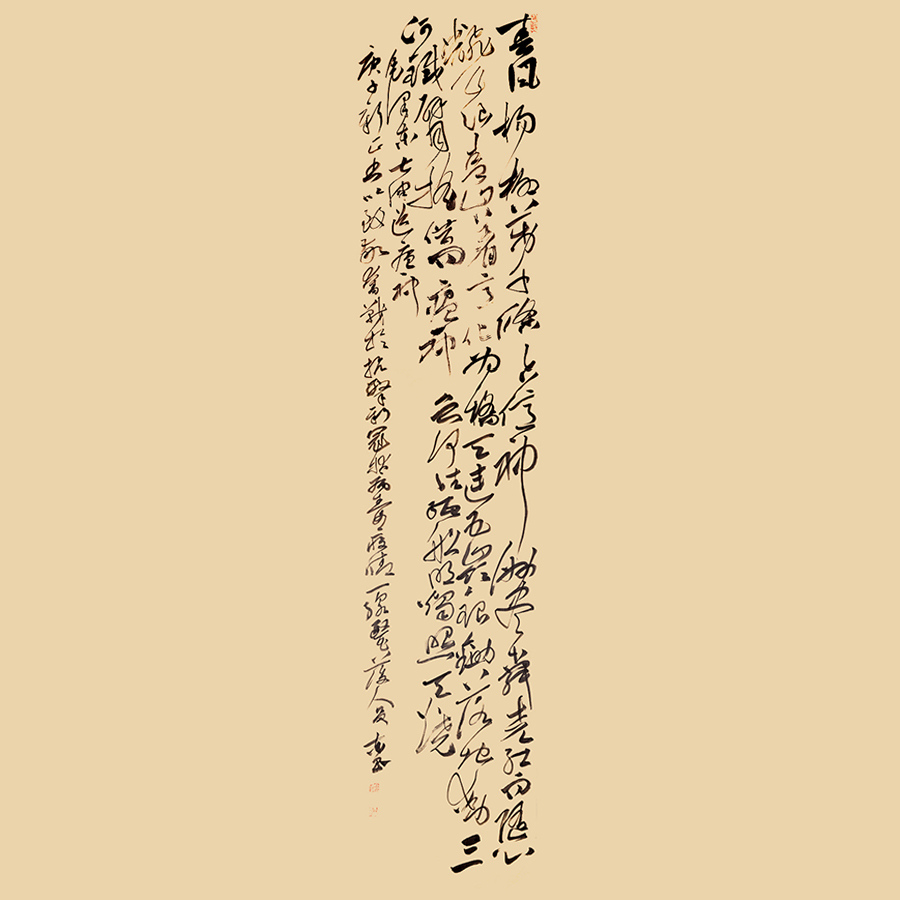 春風楊柳萬千條六億神州盡舜堯紅雨隨心
翻作浪青山著意化為橋天連五嶺銀鋤落地動三
河鐵臂搖借問瘟神去何往紙船明燭照天燒
毛澤東七律送瘟神
庚子新正書以致敬奮戰於抗擊新冠狀病毒疫情一線醫護人員